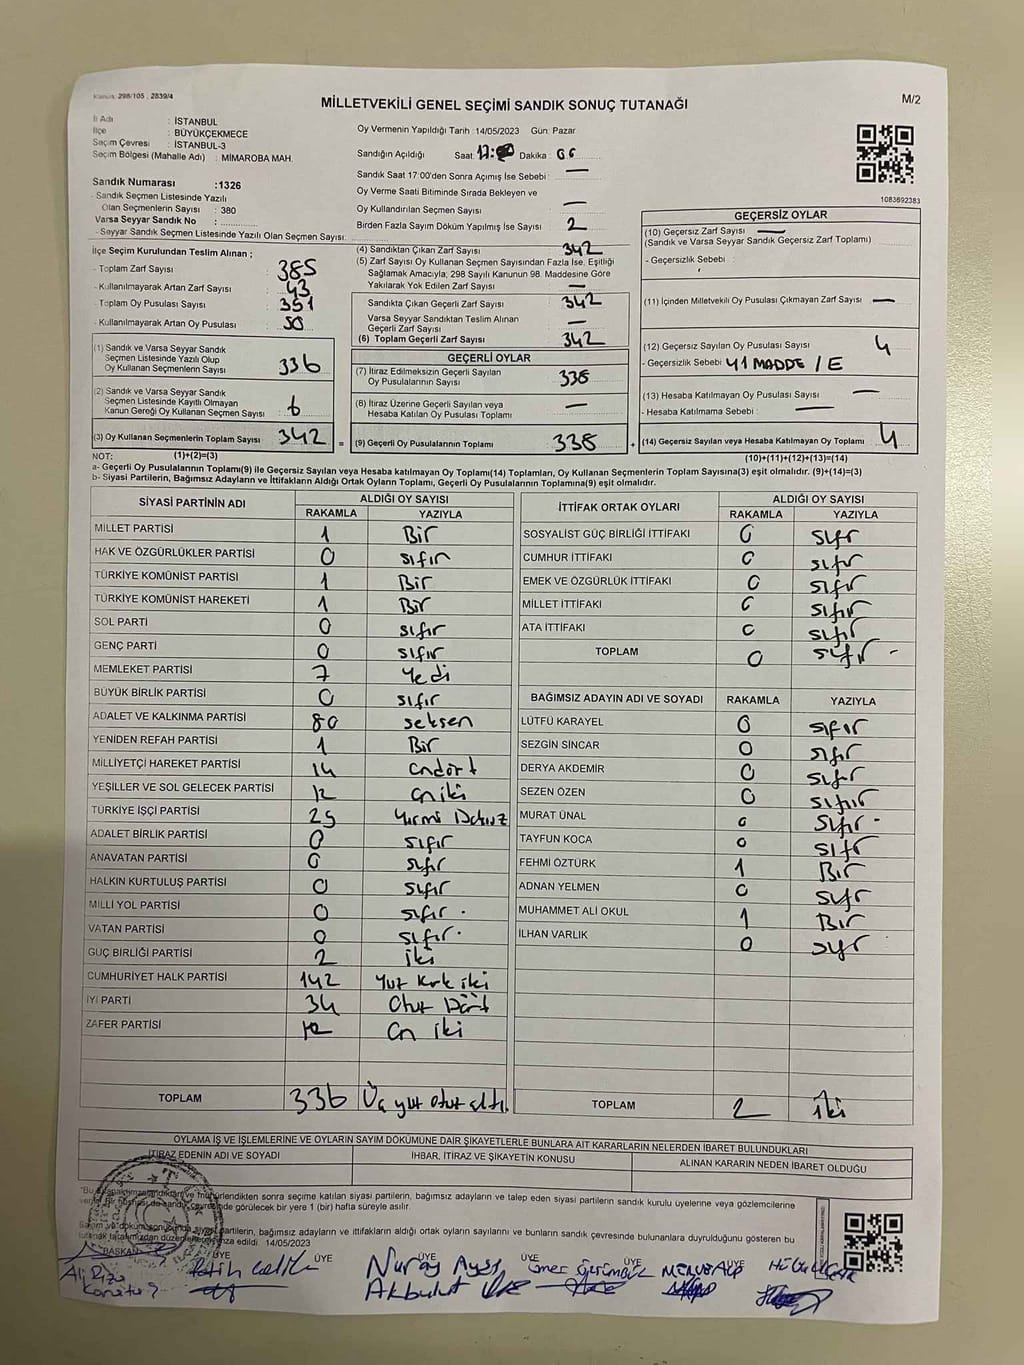 Kanun: 298/105 , 2839/4
MİLLETVEKİLİ GENEL SEÇİMİ SANDIK SONUÇ TUTANAĞI
M/2
İl Adı : İSTANBUL
İlçe : BÜYÜKÇEKMECE
Seçim Çevresi : İSTANBUL-3
Seçim Bölgesi (Mahalle Adı) : MİMAROBA MAH.
Sandık Numarası :1326
- Sandık Seçmen Listesinde Yazılı
Olan Seçmenlerin Sayısı : 380
Varsa Seyyar Sandık No :
- Seyyar Sandık Seçmen Listesinde Yazılı Olan Seçmen Sayısı:
İlçe Seçim Kurulundan Teslim Alınan ;
- Toplam Zarf Sayısı : 385
- Kullanılmayarak Artan Zarf Sayısı : 43
- Toplam Oy Pusulası Sayısı : 351
- Kullanılmayarak Artan Oy Pusulası :
(1) Sandık ve Varsa Seyyar Sandık
Seçmen Listesinde Yazılı Olup
Oy Kullanan Seçmenlerin Sayısı 336
(2) Sandık ve Varsa Seyyar Sandık
Seçmen Listesinde Kayıtlı Olmayan
Kanun Gereği Oy Kullanan Seçmen Sayısı 6
(3) Oy Kullanan Seçmenlerin Toplam Sayısı 342 =
Oy Vermenin Yapıldığı Tarih :14/05/2023 Gün: Pazar
Sandığın Açıldığı Saat: 17: Dakika :
Sandık Saat 17:00'den Sonra Açımış İse Sebebi : —
Oy Verme Saati Bitiminde Sırada Bekleyen ve
Oy Kullandırılan Seçmen Sayısı —
Birden Fazla Sayım Döküm Yapılmış İse Sayısı : 2
(4) Sandıktan Çıkan Zarf Sayısı : 342
(5) Zarf Sayısı Oy Kullanan Seçmen Sayısından Fazla İse, Eşitliği
Sağlamak Amacıyla; 298 Sayılı Kanunun 98. Maddesine Göre
Yakılarak Yok Edilen Zarf Sayısı : —
Sandıkta Çıkan Geçerli Zarf Sayısı : 342
Varsa Seyyar Sandıktan Teslim Alınan
Geçerli Zarf Sayısı : —
(6) Toplam Geçerli Zarf Sayısı : 342
GEÇERLİ OYLAR
(7) İtiraz Edilmeksizin Geçerli Sayılan
Oy Pusulalarının Sayısı 338
(8) İtiraz Üzerine Geçerli Sayılan veya
Hesaba Katılan Oy Pusulası Toplamı —
(9) Geçerli Oy Pusulalarının Toplamı 338 +
1083692383
GEÇERSİZ OYLAR
(10) Geçersiz Zarf Sayısı —
(Sandık ve Varsa Seyyar Sandık Geçersiz Zarf Toplamı)
- Geçersizlik Sebebi :
(11) İçinden Milletvekili Oy Pusulası Çıkmayan Zarf Sayısı —
(12) Geçersiz Sayılan Oy Pusulası Sayısı 4
- Geçersizlik Sebebi : 41 MADDE / E
(13) Hesaba Katılmayan Oy Pusulası Sayısı —
- Hesaba Katılmama Sebebi : —
(14) Geçersiz Sayılan veya Hesaba Katılmayan Oy Toplamı 4
NOT: (1)+(2)=(3) (10)+(11)+(12)+(13)=(14)
a- Geçerli Oy Pusulalarının Toplamı(9) ile Geçersiz Sayılan veya Hesaba katılmayan Oy Toplamı(14) Toplamları, Oy Kullanan Seçmenlerin Toplam Sayısına(3) eşit olmalıdır. (9)+(14)=(3)
b- Siyasi Partilerin, Bağımsız Adayların ve İttifakların Aldığı Ortak Oyların Toplamı, Geçerli Oy Pusulalarının Toplamına(9) eşit olmalıdır.
SİYASİ PARTİNİN ADI ALDIĞI OY SAYISI
RAKAMLA YAZIYLA
MİLLET PARTİSİ 1 Bir
HAK VE ÖZGÜRLÜKLER PARTİSİ 0 sıfır
TÜRKİYE KOMÜNİST PARTİSİ 1 Bir
TÜRKİYE KOMÜNİST HAREKETİ 1 Bir
SOL PARTİ 0 sıfır
GENÇ PARTİ 0 sıfır
MEMLEKET PARTİSİ 7 Yedi
BÜYÜK BİRLİK PARTİSİ 0 sıfır
ADALET VE KALKINMA PARTİSİ 80 seksen
YENİDEN REFAH PARTİSİ 1 Bir
MİLLİYETÇİ HAREKET PARTİSİ 14 ondört
YEŞİLLER VE SOL GELECEK PARTİSİ 12 oniki
TÜRKİYE İŞÇİ PARTİSİ 29 Yirmi Dokuz
ADALET BİRLİK PARTİSİ 0 sıfır
ANAVATAN PARTİSİ 0 sıfır
HALKIN KURTULUŞ PARTİSİ 0 sıfır
MİLLİ YOL PARTİSİ 0 sıfır
VATAN PARTİSİ 0 sıfır
GÜÇ BİRLİĞİ PARTİSİ 2 iki
CUMHURİYET HALK PARTİSİ 142 Yüz kırk iki
İYİ PARTİ 34 Otuz Dört
ZAFER PARTİSİ 12 On iki
TOPLAM 336 Üç yüz otuz altı
İTTİFAK ORTAK OYLARI ALDIĞI OY SAYISI
RAKAMLA YAZIYLA
SOSYALİST GÜÇ BİRLİĞİ İTTİFAKI 0 sıfır
CUMHUR İTTİFAKI 0 sıfır
EMEK VE ÖZGÜRLÜK İTTİFAKI 0 sıfır
MİLLET İTTİFAKI 0 sıfır
ATA İTTİFAKI 0 sıfır
TOPLAM 0 sıfır
BAĞIMSIZ ADAYIN ADI VE SOYADI RAKAMLA YAZIYLA
LÜTFÜ KARAYEL 0 sıfır
SEZGİN SİNCAR 0 sıfır
DERYA AKDEMİR 0 sıfır
SEZEN ÖZEN 0 sıfır
MURAT ÜNAL 0 sıfır
TAYFUN KOCA 0 sıfır
FEHMİ ÖZTÜRK 1 Bir
ADNAN YELMEN 0 sıfır
MUHAMMET ALİ OKUL 1 Bir
İLHAN VARLIK 0 sıfır
TOPLAM 2 iki
OYLAMA İŞ VE İŞLEMLERİNE VE OYLARIN SAYIM DÖKÜMÜNE DAİR ŞİKAYETLERLE BUNLARA AİT KARARLARIN NELERDEN İBARET BULUNDUKLARI
İTİRAZ EDENİN ADI VE SOYADI İHBAR, İTİRAZ VE ŞİKAYETİN KONUSU ALINAN KARARIN NEDEN İBARET OLDUĞU
mühürlendikten sonra seçime katılan siyasi partilerin, bağımsız adayların ve talep eden siyasi partilerin sandık kurulu üyelerine veya gözlemcilerine
görülecek bir yere 1 (bir) hafta süreyle asılır.
partilerin, bağımsız adayların ve ittifakların aldığı ortak oyların sayılarını ve bunların sandık çevresinde bulunanlara duyrulduğunu gösteren bu
edildi. 14/05/2023
BAŞKAN ÜYE ÜYE ÜYE ÜYE ÜYE ÜYE
Ali Rıza
Nuray Ayşe
Akbulut